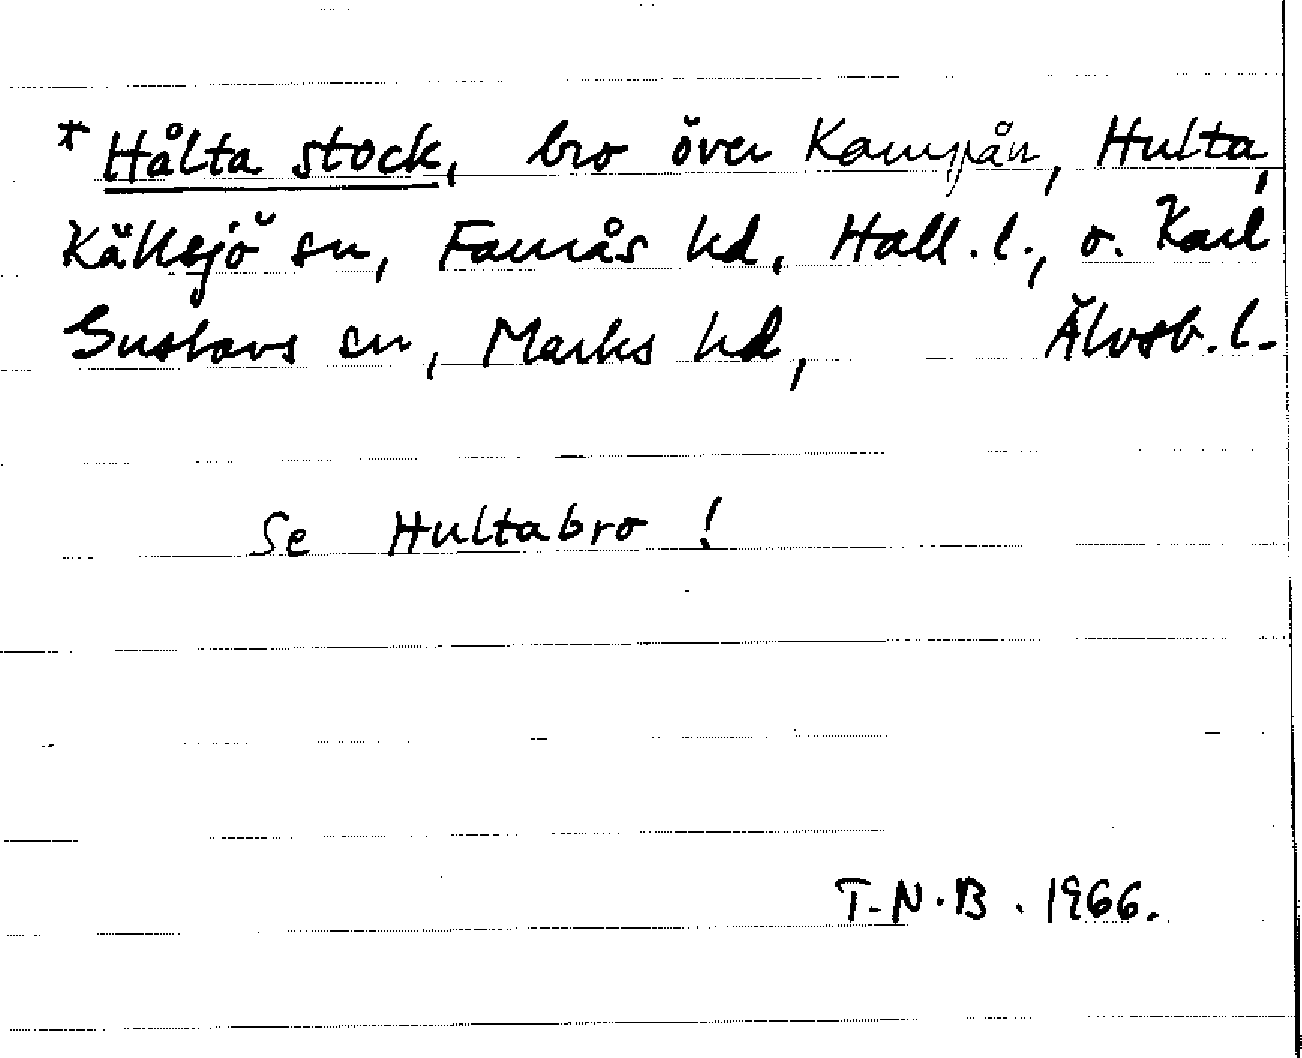 * Hålta stock, bro över Kampån, Hulta,
Källsjö sn, Faurås hd, Hall. l., o. Karl
Gustavs sn, Marks hd, Älvsb. l.
Se Hultabro !
T-N.B. 1966.